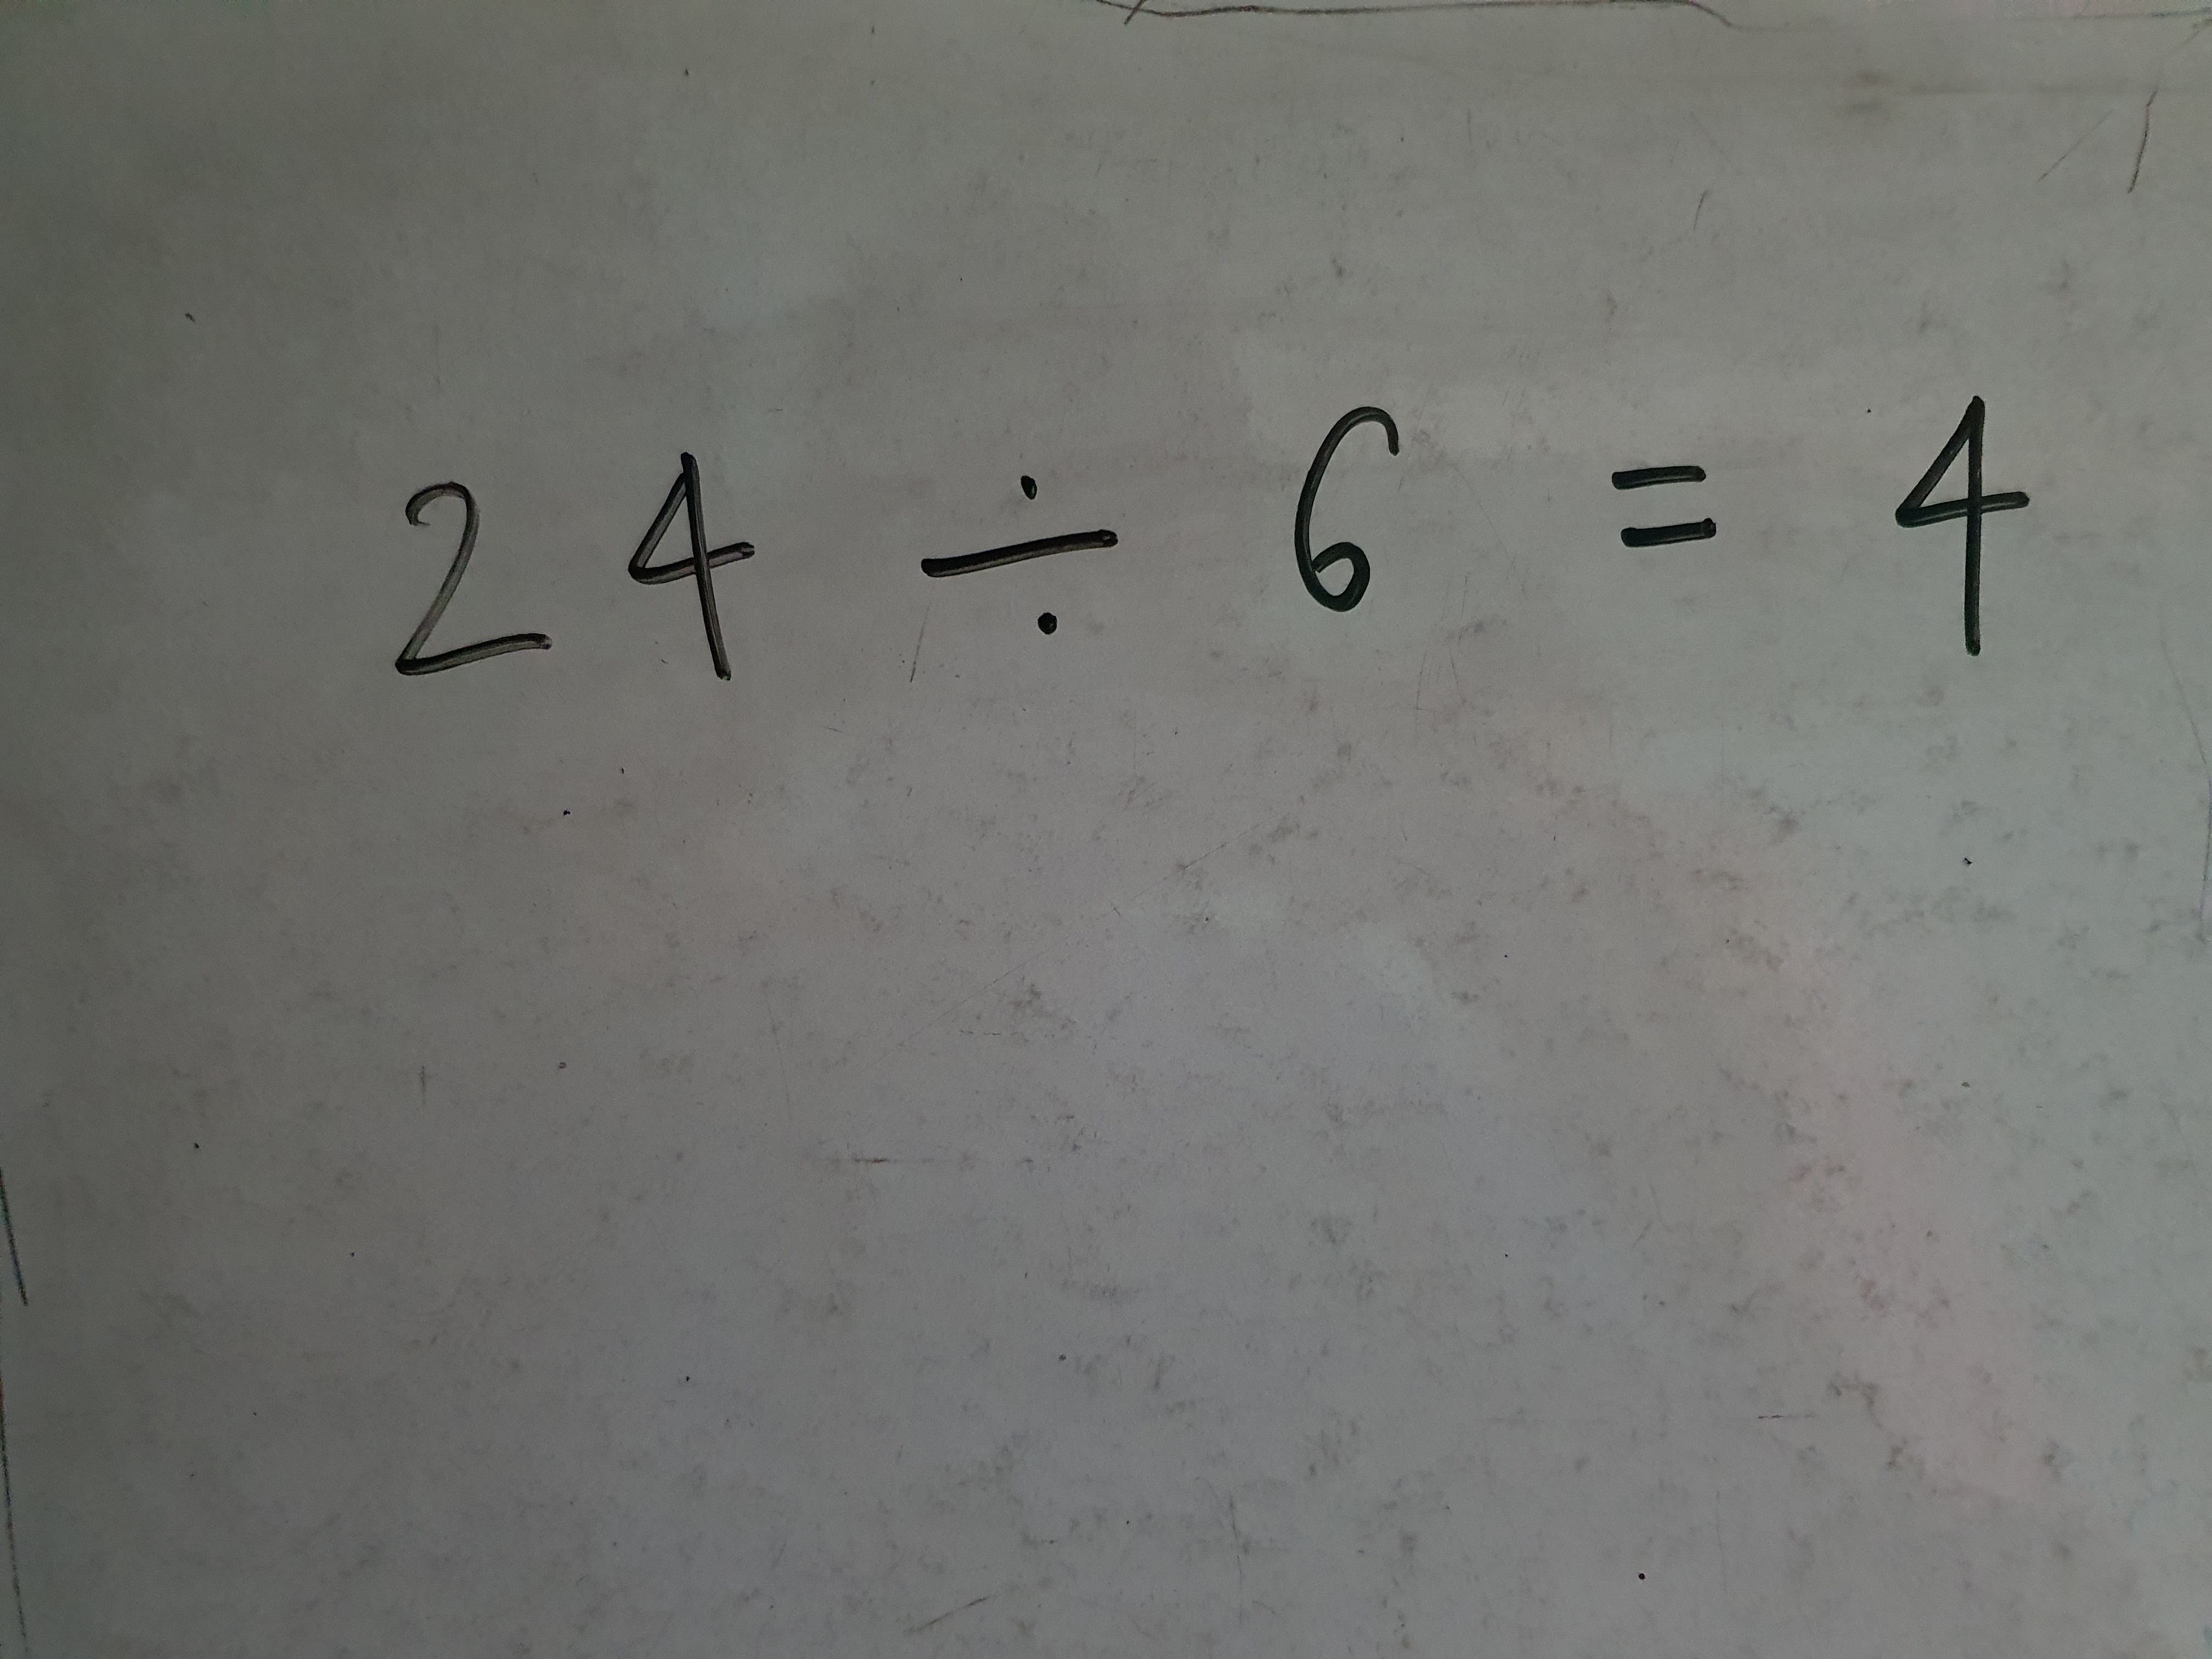 24 ÷ 6 = 4